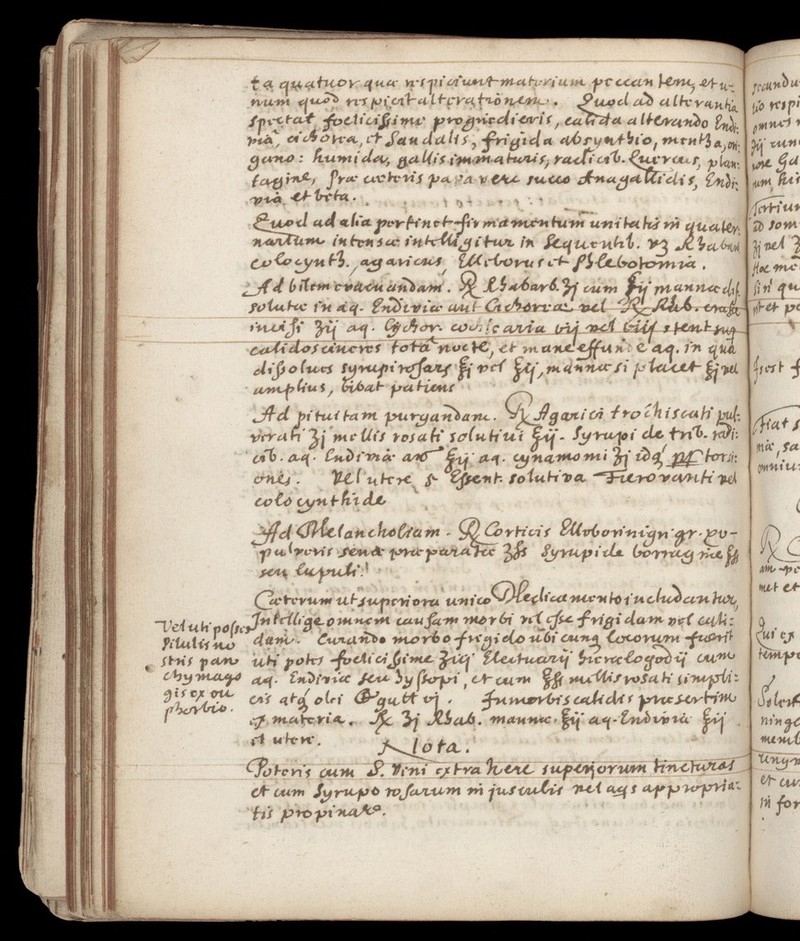 ta quatuor quæ respiciunt materium peccantem, et u=
num quod respicit alterationem. Quod ad alterantia
spectat fœlicissime progrædieris, calida alterando Endi:
via, cichorea, et Sandalis, frigida absynthio, mentha, ori:
gano: humida, gallis immaturis, radicib. Quercus, plan:
tagine, Præ cæteris papavere succo Anagallidis, Endi:
via et beta.
Quod ad alia pertinet firmamentum unitatis in quater:
narium intensæ intelligitur in Sequentib. vz Rhabar
colocynth., agaricus, Elleborus et Phlebotomia.
Ad bilem evacuandam. ℞ Rhabarb. ʒj cum ℥ij mannæ dis
solutæ in aq. Endiviæ aut Cichoreæ vel ℞ Rhb. crasse
incisi ʒij aq. Cychor. cochlearia vij vel viij stent sup
calidos cineres tota nocte, et mane effunde aq. in qua
dissolves syrupi rosars ℥j vel ℥ij, mannæ si placet ℥j vel
amplius, bibat patiens
Ad pituitam purgandam. ℞ Agarici trochiscati pul:
verati ʒj mellis rosati solutivi ℥ij. Syrupi de trib. radi:
cib. aq. Endiviæ an ℥ij aq. cynamomi ʒj idq́ pp torsi:
ones. Vel utere Essent. solutiva Fierovanti vel
colocynthide
Ad Melancholiam. ℞ Corticis Ellebori nigri gr. xv
pulveris senæ præparatæ ʒſs Syrupi de borragine ℥ſs
seu lupuli.
Cæterum ut superiora unico Medicamento includantur,
Intellige omnem causam morbi vel esse frigidam vel cali:
dam. Curando morbo frigido ubicunq locorum fuerit
uti potes fœlicissime ʒiij Electuarij hieræ logodij cum
aq. Endiviæ seu hyssopi, et cum ℥ſs mellis rosati simpli:
cis atq́ olei gutt vj. In morbis calidis præsertim
ex materia. ℞ ʒj Rhab. mannæ ℥ij aq. Endiviæ ℥ij
et utere.
Nota.
Poteris cum S. Vini extrahere superiorum tincturas
et cum Syrupo rosarum in jusculis vel aqs appropria:
tis propinare.
Vel uti posses
Pilulis no
stris pan
chymago
gis ex eu
phorbio.
secundu
omnes
Tertium
ad som
ʒj vel
Hoc me
sin qu
Fiat s
omniu
met et
Qui ex
tempe
Solent
memb
et cu
in for